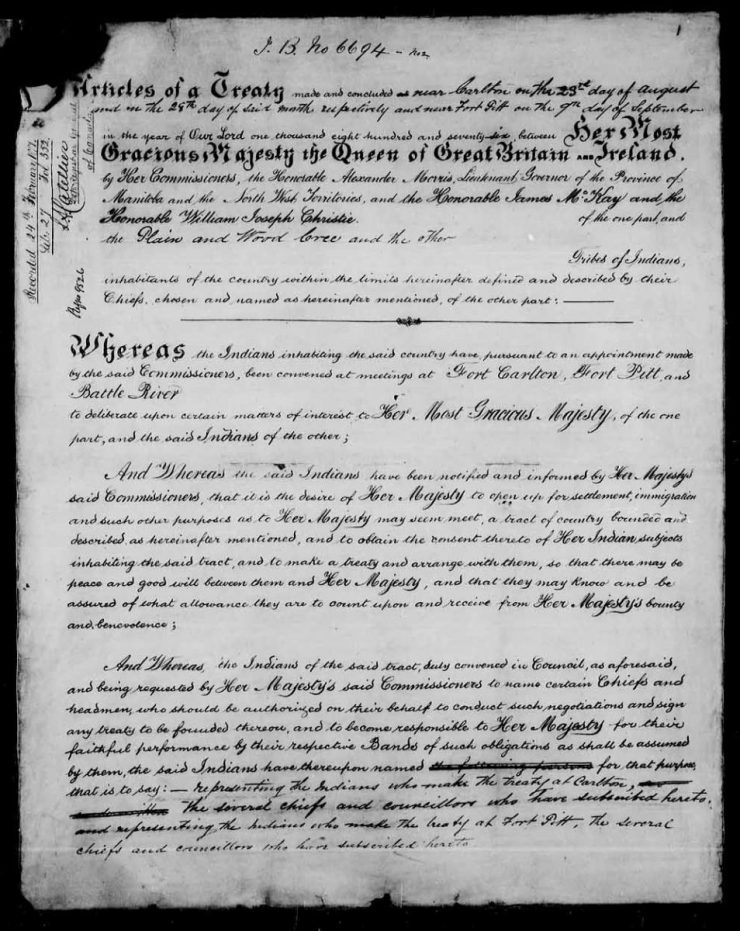 1
I. B. No 6694 -
Articles of a Treaty made and concluded near Carlton on the 23rd day of August
and on the 28th day of said month respectively and near Fort Pitt on the 9th day of September
in the year of Our Lord one thousand eight hundred and seventy-six between Her Most
Gracious Majesty the Queen of Great Britain and Ireland.
by Her Commissioners, the Honorable Alexander Morris, Lieutenant Governor of the Province of
Manitoba and the North West Territories, and the Honorable James McKay and the
Honorable William Joseph Christie. of the one part, and
the Plain and Wood Cree and the other
Tribes of Indians,
inhabitants of the country within the limits hereinafter defined and described by their
Chiefs, chosen and named as hereinafter mentioned, of the other part:
Whereas the Indians inhabiting the said country have, pursuant to an appointment made
by the said Commissioners, been convened at meetings at Fort Carlton, Fort Pitt, and
Battle River
to deliberate upon certain matters of interest to Her Most Gracious Majesty, of the one
part, and the said Indians of the other;
And Whereas the said Indians have been notified and informed by Her Majesty's
said Commissioners, that it is the desire of Her Majesty to open up for settlement, immigration
and such other purposes as to Her Majesty may seem meet, a tract of country bounded and
described as hereinafter mentioned, and to obtain the consent thereto of Her Indian subjects
inhabiting the said tract, and to make a treaty and arrange with them, so that there may be
peace and good will between them and Her Majesty, and that they may know and be
assured of what allowance they are to count upon and receive from Her Majesty's bounty
and benevolence;
And Whereas, the Indians of the said tract, duly convened in Council, as aforesaid,
and being requested by Her Majesty's said Commissioners to name certain Chiefs and
headmen, who should be authorized on their behalf to conduct such negotiations and sign
any treaty to be founded thereon, and to become responsible to Her Majesty for their
faithful performance by their respective Bands of such obligations as shall be assumed
by them, the said Indians have thereupon named the following persons for that purpose,
that is to say: — representing the Indians who make the treaty at Carlton,
the several chiefs and councillors who have subscribed hereto,
and representing the Indians who make the treaty at Fort Pitt, the several
chiefs and councillors who have subscribed hereto
Recorded 24th February 1877
Lib. 27 Fol 352
of Canada